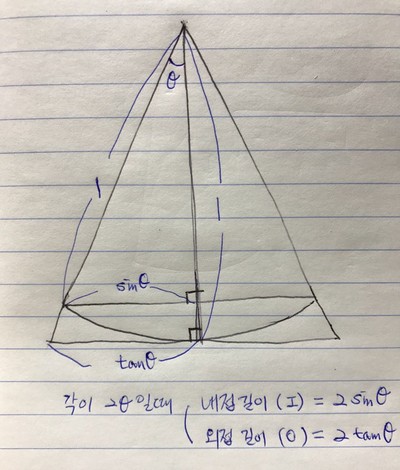 θ
1
1
sinθ
tanθ
각이 2θ일때, 내접길이 (I) = 2 sinθ
외접 길이 (O) = 2 tanθ